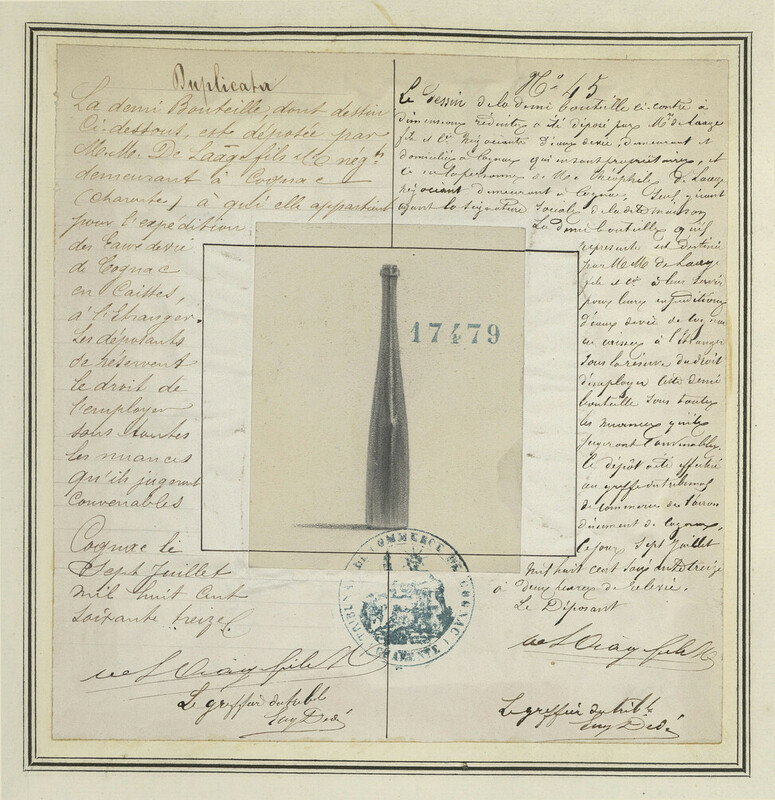 Duplicata
La demi Bouteille, dont dessin
Ci-dessous, est déposée par
M.M. De Laâge fils & Cº négts
demeurant à Cognac
(Charente) à qui elle appartient
pour l'expédition
des Eaux de vie
de Cognac
en Caisses,
à l'Etranger.
Les déposants
se réservent
le droit de
l'employer
sous toutes
les nuances
qu'ils jugeront
Convenables
Cognac le
Sept Juillet
mil huit Cent
soixante treize
Le greffier du tribl
Nº 45
Le Dessin de la demi bouteille ci-contre à
dimensions réduites a été déposé par Mrs de Laage
fils et Cie Négociants d'eaux de vie, demeurant et
domiciliés à Cognac qui en sont propriétaires, et
ce en la personne de Mr Théophile de Laage
Négociant demeurant à Cognac, Seul gérant
ayant la signature sociale de la dite maison
La demi bouteille qu'il
représente est destinée
par M.M. de Laage
fils et Cie à leur servir
pour leurs expéditions
d'eaux de vie de Cognac
en caisses à l'étranger
sous la réserve du droit
d'employer cette demi
bouteille sous toutes
les nuances qu'ils
jugeront convenables.
Le dépôt a été effectué
au greffe du tribunal
de commerce de l'arron
dissement de Cognac,
ce jour Sept Juillet
mil huit cent soixante treize
à deux heures de relevée.
Le Déposant
Le greffier du tribl
17479
TRIBUNAL DE COMMERCE DE COGNAC
(CHARENTE)